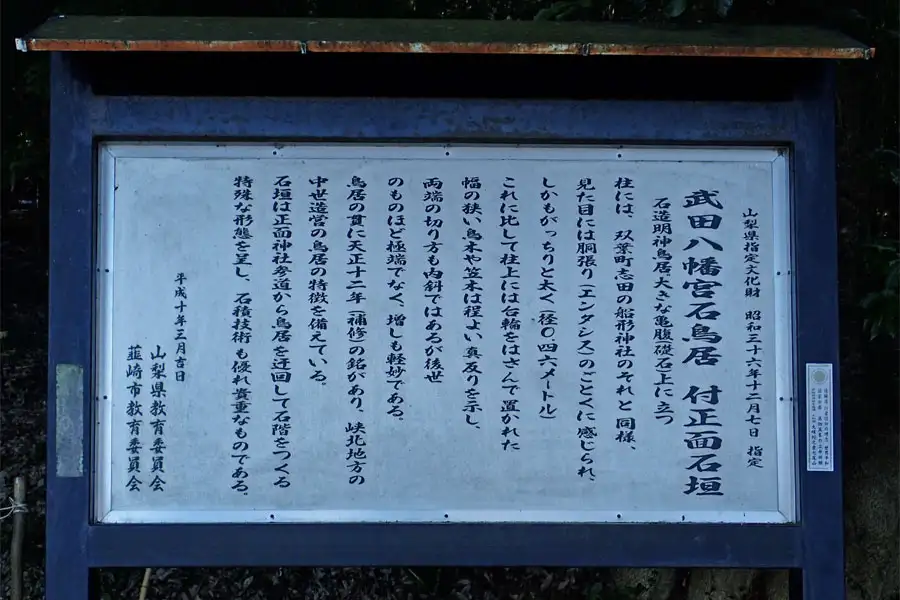 山梨県指定文化財　昭和三十六年十二月七日　指定
武田八幡宮石鳥居　付正面石垣
石造明神鳥居、大きな亀腹礎石上に立つ
柱には、双葉町志田の船形神社のそれと同様、
見た目には胴張り(エンタシス)のごとくに感じられ、
しかもがっちりと太く(径〇.四六メートル)
これに比して柱上には台輪をはさんで置かれた
幅の狭い島木や笠木は程よい真反りを示し、
両端の切り方も内斜ではあるが後世
のものほど極端でなく、増しも軽妙である。
鳥居の貫に天正十二年(補修)の銘があり、峡北地方の
中世造営の鳥居の特徴を備えている。
石垣は正面神社参道から鳥居を迂回して石階をつくる
特殊な形態を呈し、石積技術も優れ貴重なものである。
平成十年三月吉日
山梨県教育委員会
韮崎市教育委員会